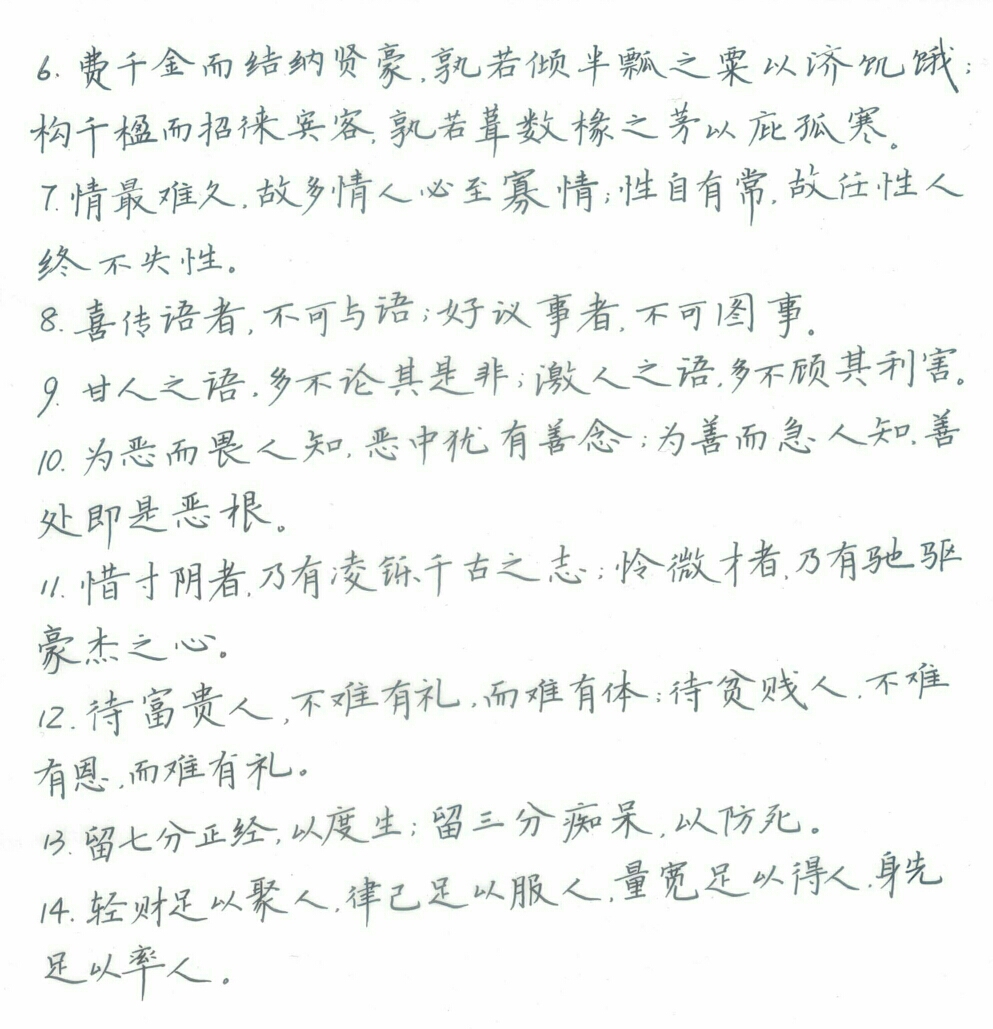 6. 费千金而结纳贤豪,孰若倾半瓢之粟以济饥饿;
构千楹而招徕宾客,孰若葺数椽之茅以庇孤寒。
7. 情最难久,故多情人必至寡情;性自有常,故任性人
终不失性。
8. 喜传语者,不可与语;好议事者,不可图事。
9. 甘人之语,多不论其是非;激人之语,多不顾其利害。
10. 为恶而畏人知,恶中犹有善念;为善而急人知,善
处即是恶根。
11. 惜寸阴者,乃有凌铄千古之志;怜微才者,乃有驰驱
豪杰之心。
12. 待富贵人,不难有礼,而难有体;待贫贱人,不难
有恩,而难有礼。
13. 留七分正经,以度生;留三分痴呆,以防死。
14. 轻财足以聚人,律己足以服人,量宽足以得人,身先
足以率人。